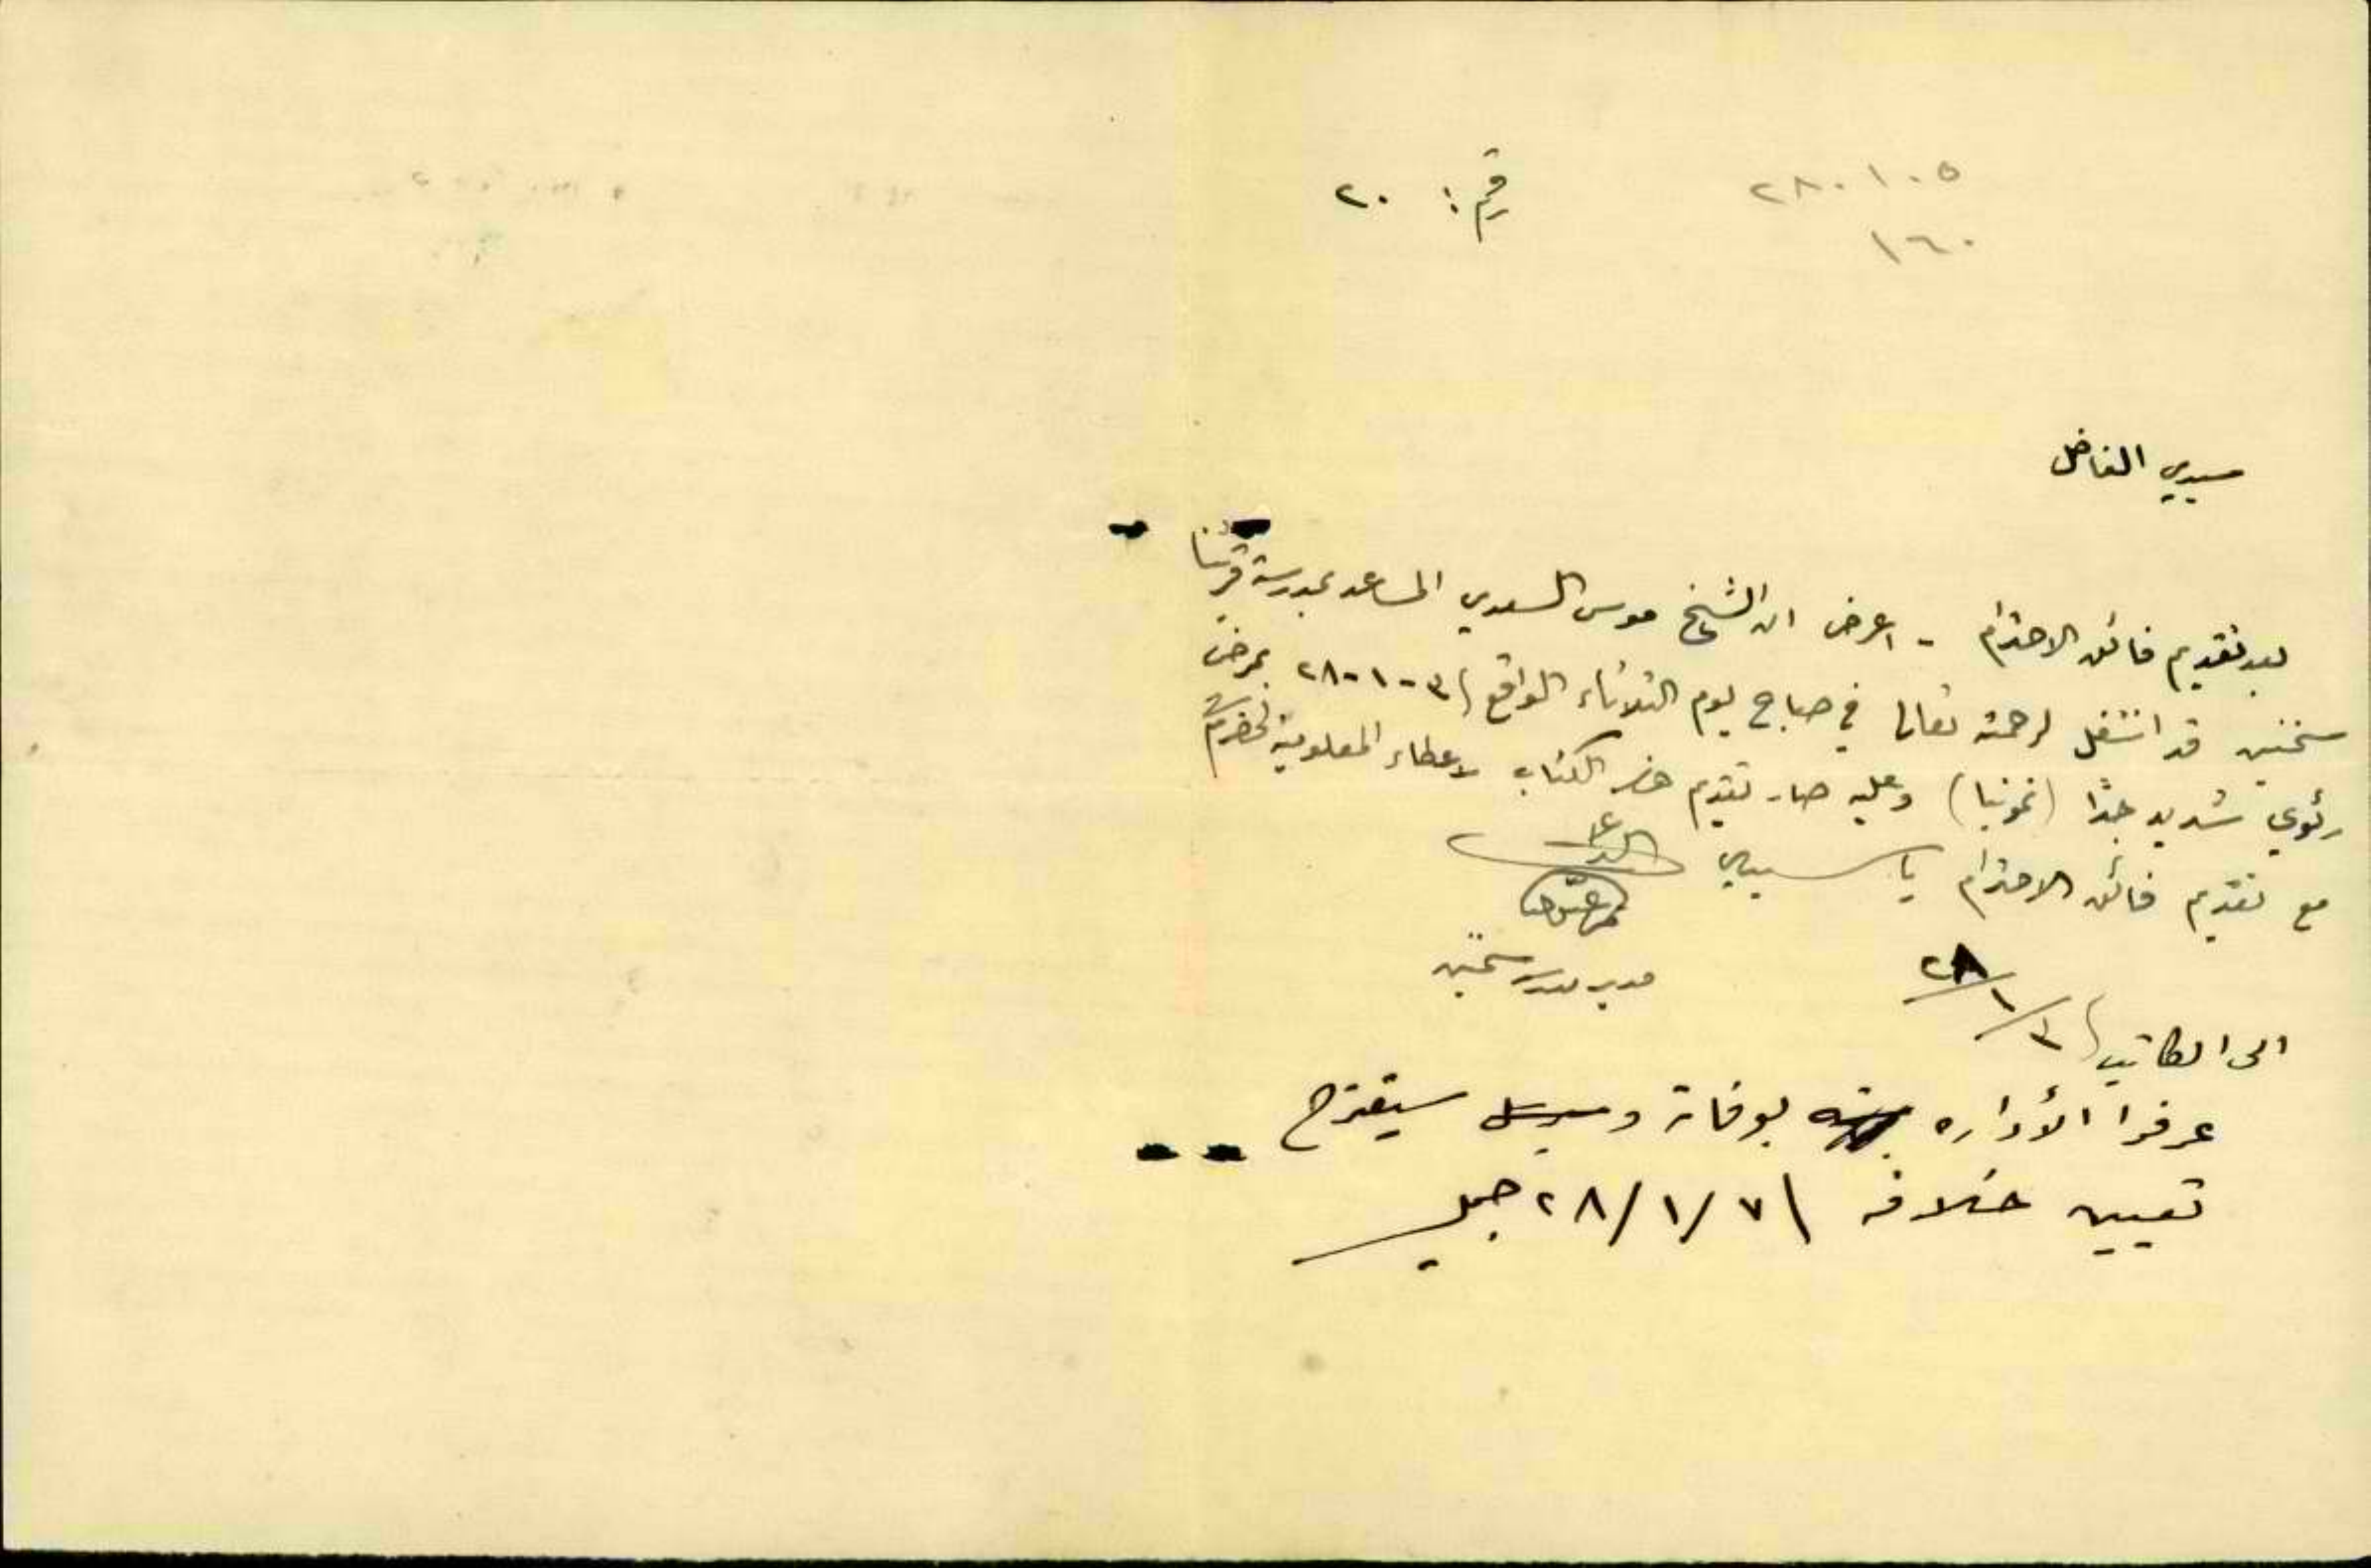 ٢٨٠١٠٥
رقم: ٢٠
١٦٠
سيدي الفاضل
بعد تقديم فائق الاحترام - اعرض ان الشيخ موسى السعدي المساعد بمدرسة قريتنا
سخنين قد انتقل لرحمته تعالى في صباح يوم الثلاثاء الواقع ٣-١-٢٨ بمرض
رئوي شديد جدًا (نمونيا) وعليه صار تقديم هذا الكتاب لاعطاء المعلومية لحضرتكم
مع تقديم فائق الاحترام يا سيدي
الداعي
مدير مدرسة سخنين
٣/١/٢٨
الى الكاتب
عرفوا الأداره بوفاته و سيقترح
تعيين خلافه ٢٨/١/٧ جميل